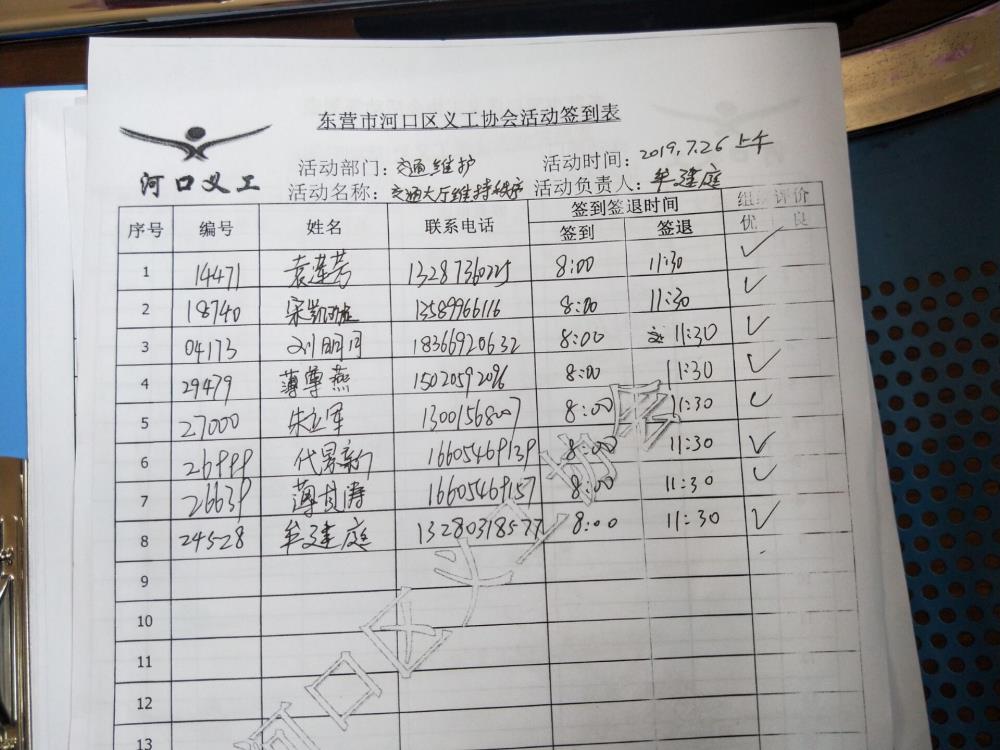 东营市河口区义工协会活动签到表
河口义工
活动部门：交通维护 活动时间：2019.7.26 上午
活动名称：交通大厅维持秩序 活动负责人：牟建庭
序号 编号 姓名 联系电话 签到签退时间 组织评价
签到 签退 优 良
1 14471 袁莲芳 13287360225 8:00 11:30 ✓
2 18740 宋凯旋 13589966116 8:00 11:30 ✓
3 04173 刘明月 18366920632 8:00 11:30 ✓
4 29479 薄尊燕 15020592096 8:00 11:30 ✓
5 27000 朱立军 13001568007 8:00 11:30 ✓
6 26999 代景新 16605469139 8:00 11:30 ✓
7 26639 薄其涛 16605469157 8:00 11:30 ✓
8 24528 牟建庭 13280318577 8:00 11:30 ✓
9
10
11
12
13
河口区义工协会